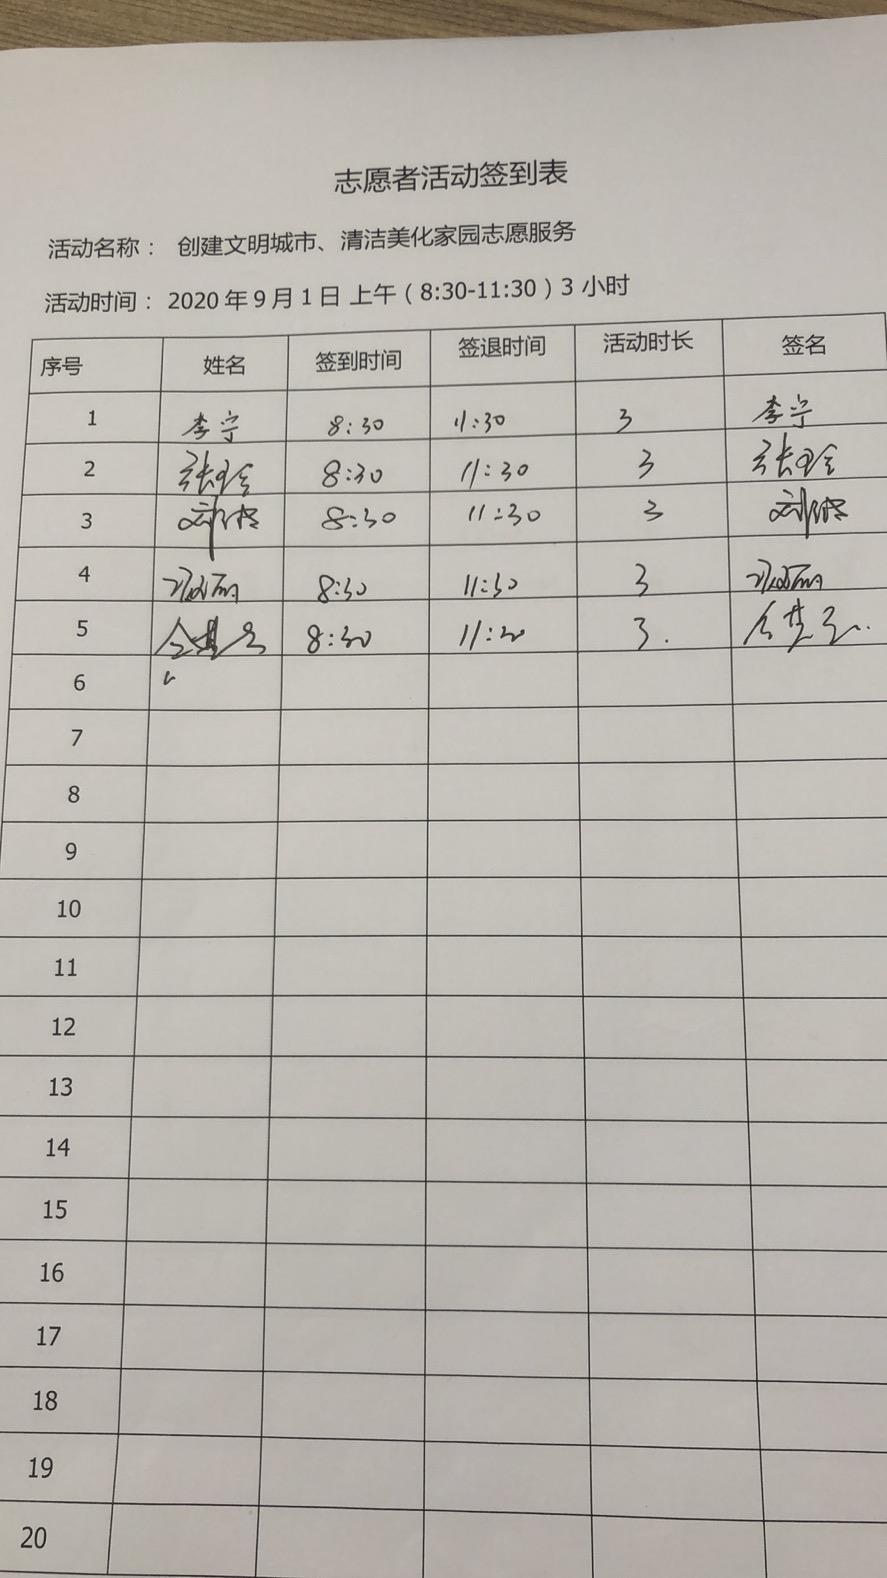 志愿者活动签到表
活动名称： 创建文明城市、清洁美化家园志愿服务
活动时间：2020年9月1日 上午（8:30-11:30）3 小时
序号 姓名 签到时间 签退时间 活动时长 签名
1 李宁 8:30 11:30 3 李宁
2 8:30 11:30 3
3 8:30 11:30 3
4 8:30 11:30 3
5 8:30 3.
6
7
8
9
10
11
12
13
14
15
16
17
18
19
20